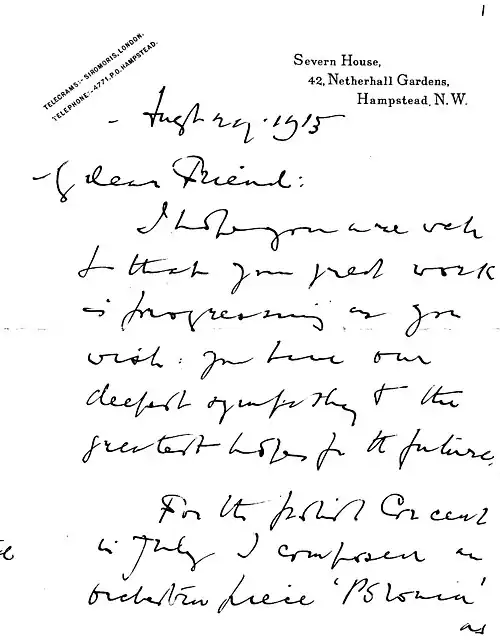 1
TELEGRAMS:- SIROMORIS, LONDON.
TELEPHONE:- 4771, P.O. HAMPSTEAD.
Severn House,
42, Netherhall Gardens,
Hampstead, N.W.
1915
dear Friend:
I hope you are well
& that your great work
is progressing as you
wish: you have our
deepest sympathy & the
greatest hopes for the future.
For the polish Concert
in July I composed an
orchestral piece 'Polonia'
as